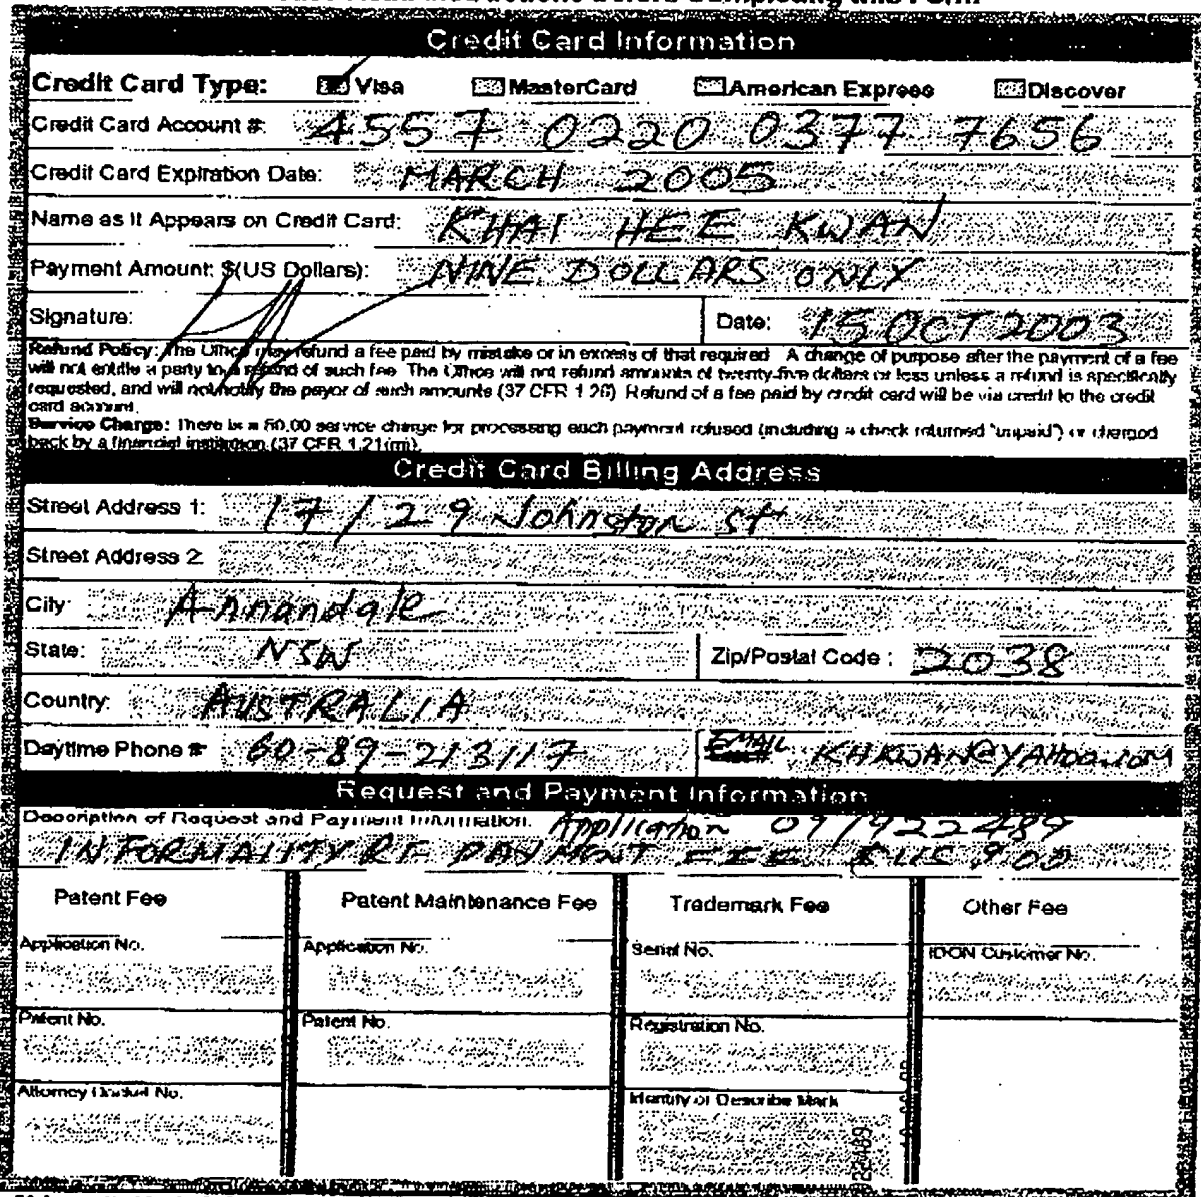 Credit Card Information
Credit Card Type: Visa MasterCard American Express Discover
Credit Card Account #: 4557 0220 0377 7656
Credit Card Expiration Date: MARCH 2005
Name as It Appears on Credit Card: KHAI HEE KWAN
Payment Amount: $(US Dollars): NINE DOLLARS ONLY
Signature: Date: 15 OCT 2003
Refund Policy: The Office may refund a fee paid by mistake or in excess of that required. A change of purpose after the payment of a fee
will not entitle a party to a refund of such fee. The Office will not refund amounts of twenty-five dollars or less unless a refund is specifically
requested, and will not notify the payor of such amounts (37 CFR 1.26). Refund of a fee paid by credit card will be via credit to the credit
card account.
Service Charge: There is a 50.00 service charge for processing each payment refused (including a check returned "unpaid") or charged
back by a financial institution (37 CFR 1.21(m)).
Credit Card Billing Address
Street Address 1: 17/29 Johnston St
Street Address 2:
City: Annandale
State: NSW Zip/Postal Code: 2038
Country: AUSTRALIA
Daytime Phone #: 60-89-213117 EMAIL KHKWAN@YAHOO.COM
Request and Payment Information
Description of Request and Payment Information: Application 09/922489
INFORMALITY RE PAYMENT FEE $US 9.00
Patent Fee Patent Maintenance Fee Trademark Fee Other Fee
Application No. Application No. Serial No. IDON Customer No.
Patent No. Patent No. Registration No.
Attorney Docket No. Identify or Describe Mark
22489